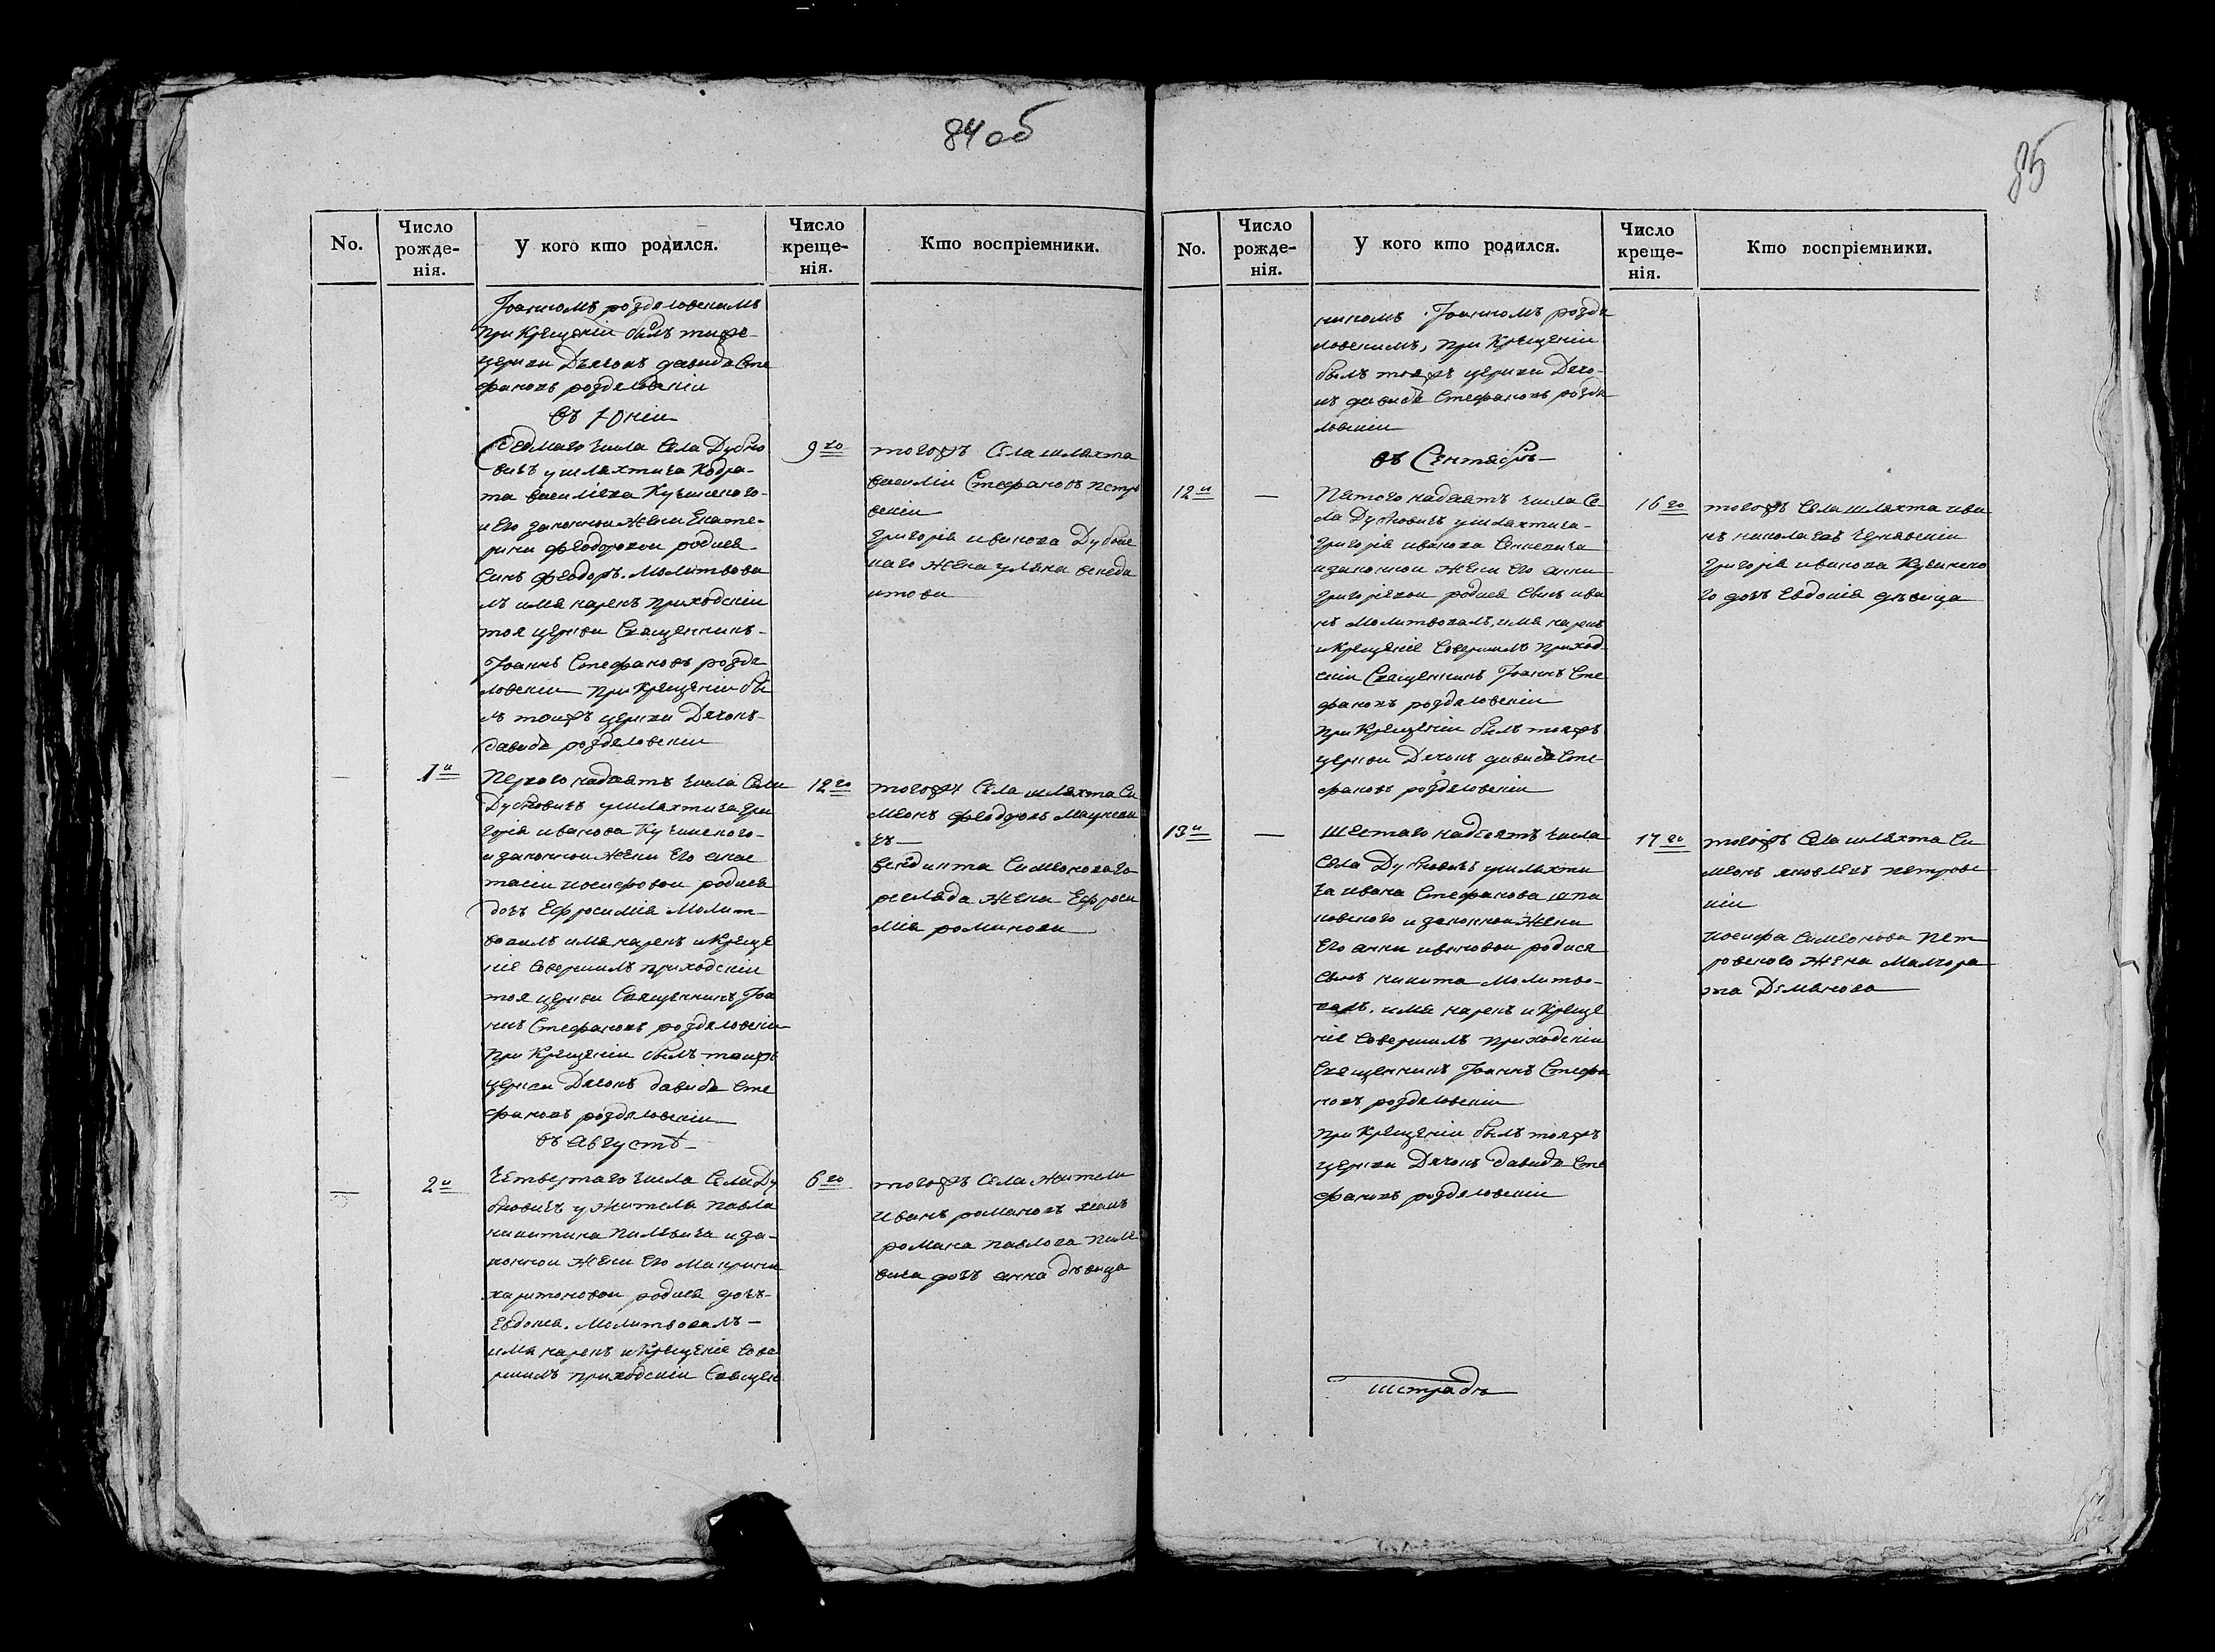 84 об
No.
Число рожде-нія.
У кого кто родился.
Число креще-нія.
Кто воспріемники.
Іоанномъ роздяловскимъ
при Крещеніи былъ тояже
церкви Дячокъ давидъ Сте
фановъ роздяловскіи
въ Іюніи
Седмаго числа Села Дубно
вичъ у шляхтича
та василіева Кучинского
и Его законнои Жени Екате-
рини феодоровои родися
Синъ феодоръ. Молитвова
лъ имя нарекъ приходскіи
тоя церкви Священникъ
Іоаннъ Стефановъ роздя
ловскіи при Крещеніи бы
лъ тояжъ церкви Дячокъ
давидъ роздяловскіи
9го
тогожъ Села шляхта
василіи Стефановъ петро
вскіи
григорія иванова
жена уляна
1й
Первогонадесять числа Села
Дубновичъ у шляхтича гри
горія иванова Кучинского
и законнои жени Его анас
тасіи иосифовои родися
дочъ Ефросимія Молит
вовалъ имя нарекъ и Креще
ніе Совершилъ приходскіи
тоя церкви Священникъ Іоа
ннъ Стефановъ роздяловскіи
при Крещеніи былъ тояже
церкви Дячокъ давидъ Сте
фановъ роздяловскіи
12го
тогожъ Села шляхта Си
меонъ феодоровъ
чъ
Симеонова
жена Ефроси
мія романова
въ Августѣ
2й
Четвертаго числа Села Ду
бновичъ у Жителя павла
никитина и за-
коннои Жени Его Макрини
харитоновои родися дочъ
Евдокия. Молитвовалъ
имя нарекъ и Крещеніе Сове
ршилъ приходскіи Священ
6го
тогожъ Села Жители
Иванъ романовъ
романа павлова
дочъ анна дѣвица
85
No.
Число рожде-нія.
У кого кто родился.
Число креще-нія.
Кто воспріемники.
никомъ Іоанномъ роздя
ловскимъ, при Крещеніи
былъ тояжъ церкви Дячо
къ давидъ Стефановъ роздя
ловскіи
въ Сентябрѣ
12й
Пятогонадесять числа Се
ла Дубновичъ у шляхтича
григорія иванова
и законнои жени Его анни
григоріевои родися Сынъ ива
нъ Молитвовалъ, имя нарекъ
и Крещеніе Совершилъ приход
скіи Священникъ Іоаннъ Сте
фановъ роздяловскіи
при Крещеніи былъ тояжъ
церкви Дячокъ давидъ Сте-
фановъ роздяловскіи
16го
тогожъ Села шляхта ива
нъ николаевъ
григорія иванова Кучинско
го дочъ Евдокія дѣвица
13й
Шестагонадесять числа
Села Дубновичъ у шляхти
ча ивана Стефанова шпа
ковского и законнои Жени
Его анни ивановои родися
сынъ никита Молитво-
валъ. имя нарекъ и Креще
ніе Совершилъ приходскіи
Священникъ Іоаннъ Стефа
новъ роздяловскіи
при Крещеніи былъ тояжъ
церкви Дячокъ давидъ Сте
фановъ роздяловскіи
17го
тогожъ Села шляхта Си
меонъ яковлевъ петровс
кіи
иосифа Симеонова пет
ровского жена